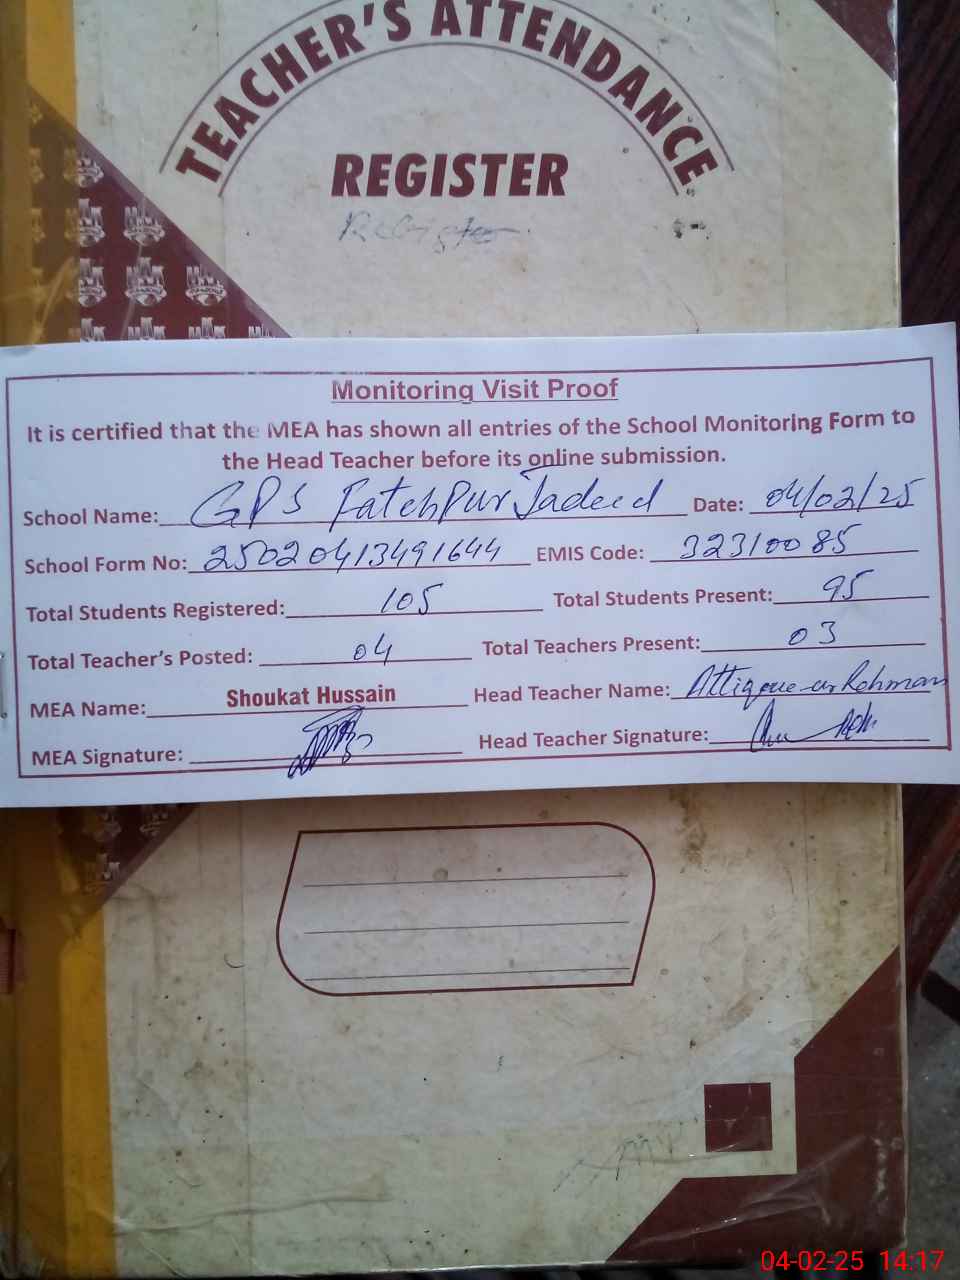 TEACHER'S ATTENDANCE
REGISTER
Register
Monitoring Visit Proof
It is certified that the MEA has shown all entries of the School Monitoring Form to
the Head Teacher before its online submission.
School Name: GPS Fatehpur Jadeed Date: 04/02/25
School Form No: 25020413491644 EMIS Code: 32310085
Total Students Registered: 105 Total Students Present: 95
Total Teacher's Posted: 04 Total Teachers Present: 03
MEA Name: Shoukat Hussain Head Teacher Name: Attique-ur-Rehman
MEA Signature: Head Teacher Signature:
04-02-25 14:17